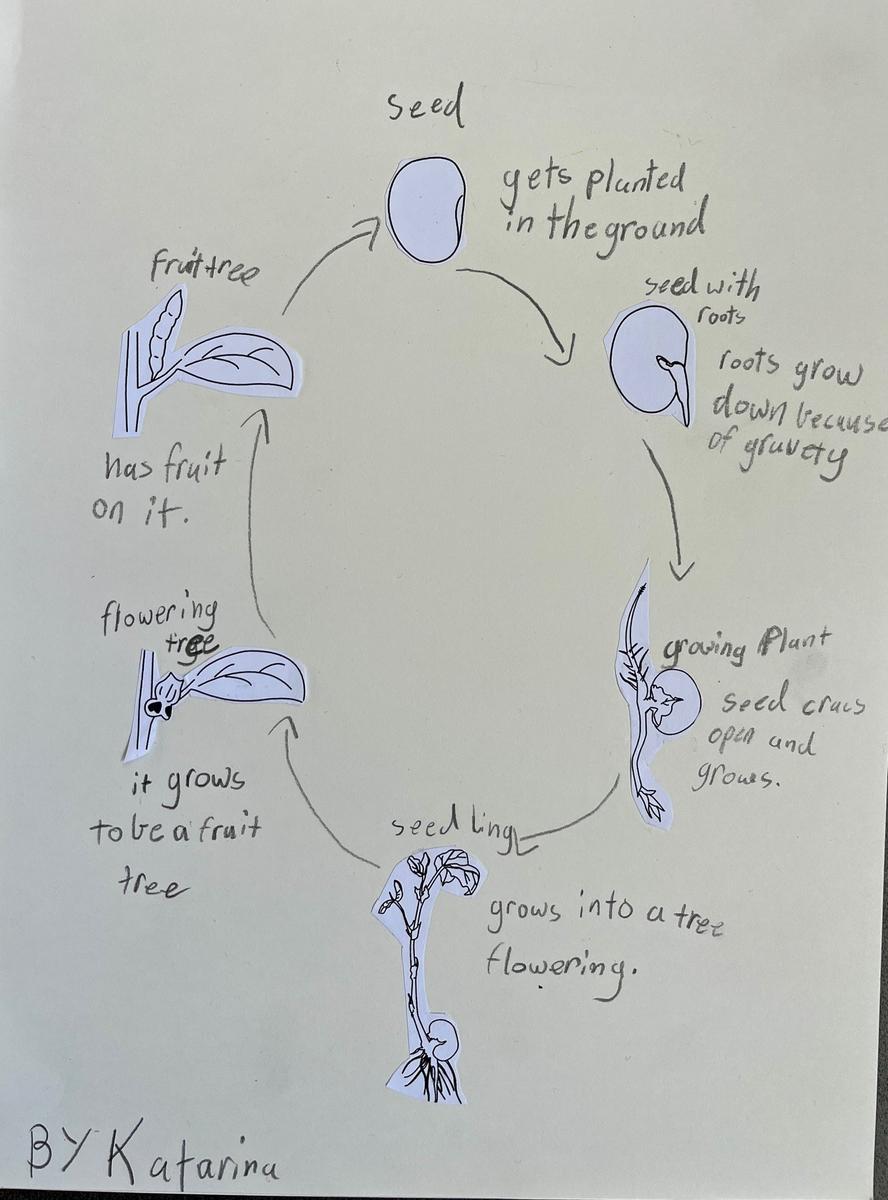 seed
gets planted
in the ground
seed with
roots
roots grow
down because
of gravety
growing Plant
seed cracs
open and
grows.
seed Ling
grows into a tree
flowering.
flowering
tree
it grows
to be a fruit
tree
fruit tree
has fruit
on it.
BY Katarina